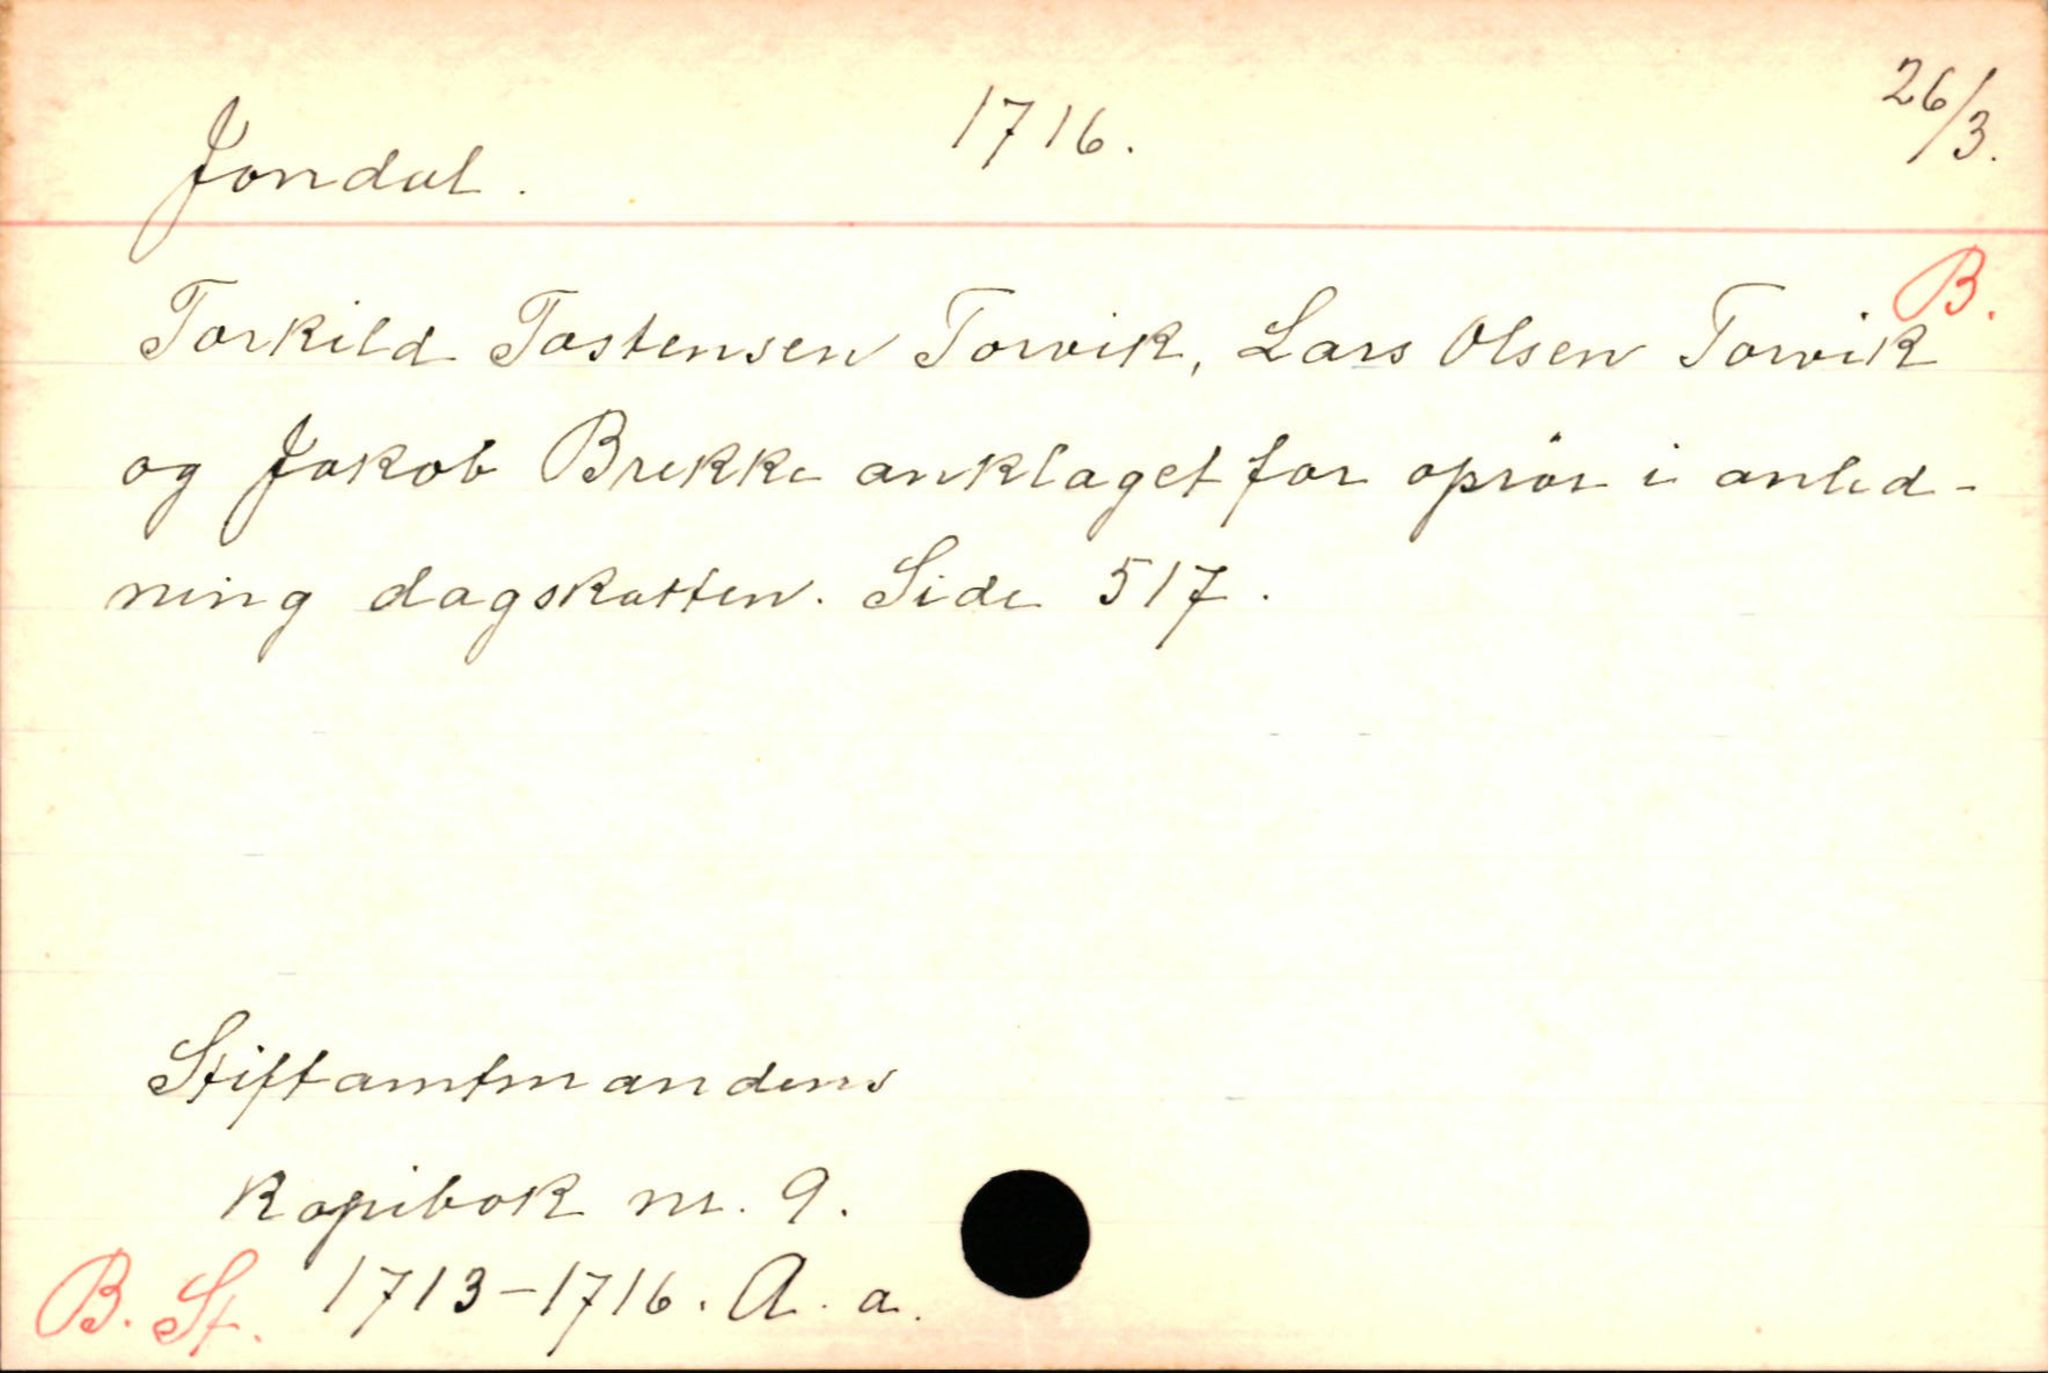 Jondal. 1716. 26/3.
B.
Torkild Tostensen Torvik, Lars Olsen Torvik
og Jakob Brekke anklaget for oprör i anled-
ning dagskatten. Side 517.
Stiftamtmandens
Kopibok nr. 9.
B. St. 1713-1716. A. a.